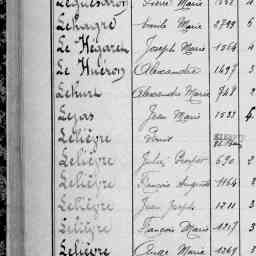 Lequesaron Pierre Marie
Lehagre Emile Marie 2799
Le Hégaret Joseph Marie 1564 4
Le Huéron Alexandre 1497 3
Lehurt Alexandre Marie 748 2
Lejas Jean Marie 1533 4
Lelièvre Benoit
Lelièvre Jules Prosper 690 2
Lelièvre François Auguste 1164 2
Lelièvre Jean Joseph 1211 3
Lelièvre François Marie 1217 3
Lelièvre Ange Marie 1269 3